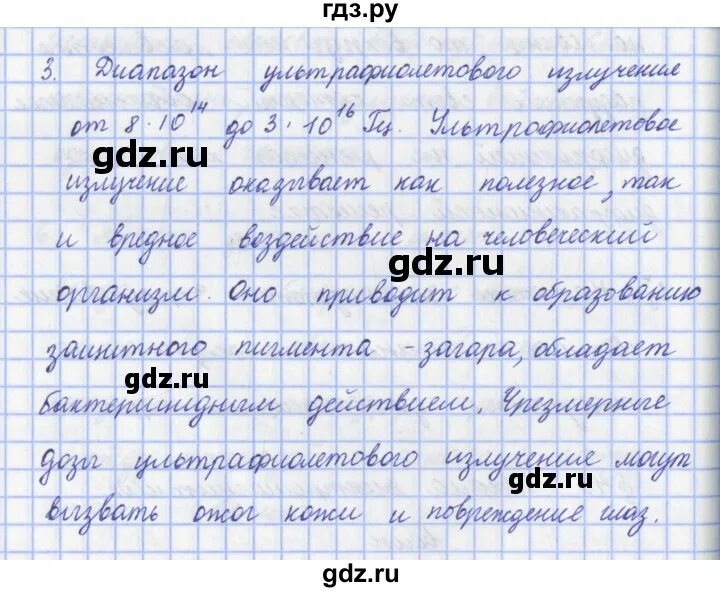 гдз.ру
3. Диапазон ультрафиолетового излучение
от 8·10¹⁴ до 3·10¹⁶ Гц. Ультрафиолетовое
gdz.ru
излучение оказывает как полезное, так
и вредное воздействие на человеческий
gdz.ru
организм. Оно приводит к образованию
защитного пигмента - загара, обладает
gdz.ru
бактерицидным действием. Чрезмерные
дозы ультрафиолетового излучение могут
gdz.ru
вызвать ожог кожи и повреждение глаз.
gdz.ru